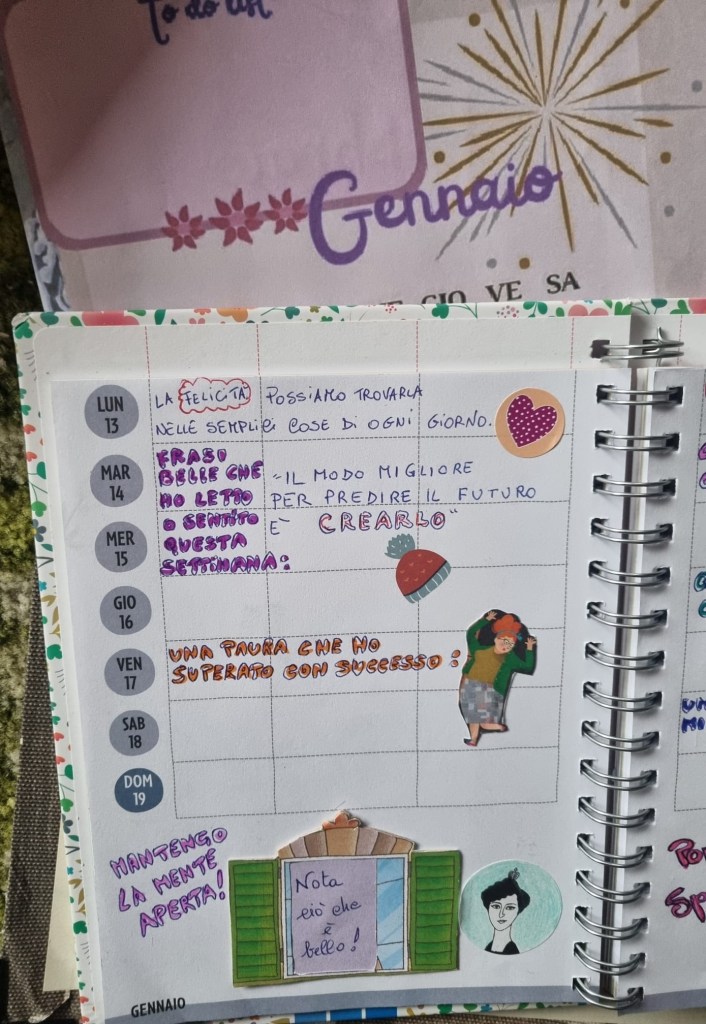 To do list
Gennaio
GIO VE SA
LUN
13
LA FELICITÀ POSSIAMO TROVARLA
NELLE SEMPLICI COSE DI OGNI GIORNO.
MAR
14
FRASI
BELLE CHE
HO LETTO
O SENTITO
QUESTA
SETTIMANA:
"IL MODO MIGLIORE
PER PREDIRE IL FUTURO
È CREARLO"
MER
15
GIO
16
VEN
17
UNA PAURA CHE HO
SUPERATO CON SUCCESSO:
SAB
18
DOM
19
MANTENGO
LA MENTE
APERTA!
Nota
ciò che
è
bello!
GENNAIO